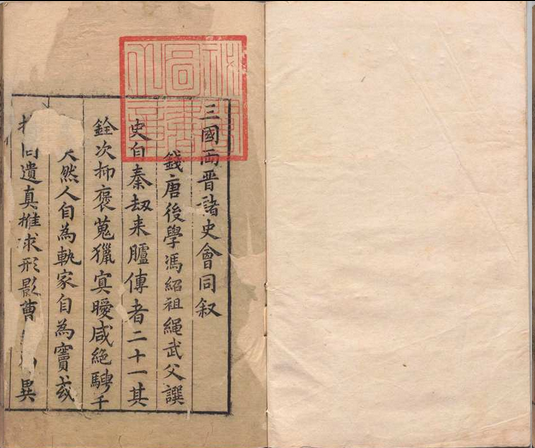 三國兩晉諸史會同叙
錢唐後學馮紹祖繩武父譔
史自秦刼來臚傳者二十一其
銓次抑褒蒐獵寘曖咸絶騁千
然人自為軌家自為竇或
同遺真推求形影 異